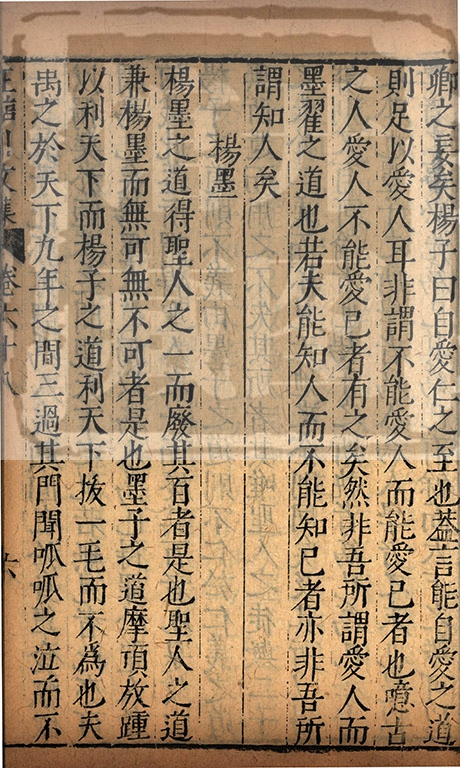 卿之妄矣楊子曰自愛仁之至也葢言能自愛之道
則足以愛人耳非謂不能愛人而能愛已者也噫古
之人愛人不能愛已者有之矣然非吾所謂愛人而
墨翟之道也若夫能知人而不能知已者亦非吾所
謂知人矣
楊墨
楊墨之道得聖人之一而廢其百者是也聖人之道
兼楊墨而無可無不可者是也墨子之道摩頂放踵
以利天下而楊子之道利天下拔一毛而不為也夫
禹之於天下九年之間三過其門聞呱呱之泣而不
文集 卷六十八 六